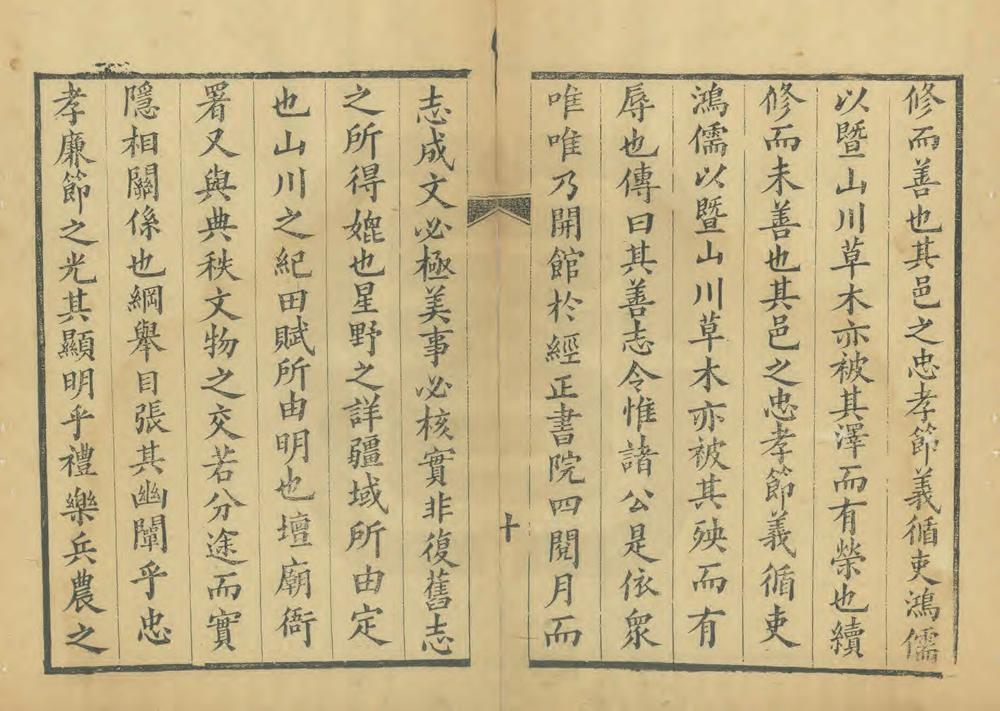 修而善也其邑之忠孝節義循吏鴻儒
以暨山川草木亦被其澤而有榮也續
修而未善也其邑之忠孝節義循吏
鴻儒以暨山川草木亦被其殃而有
辱也傳曰其善志令惟諸公是依眾
唯唯乃開館於經正書院四閱月而
十
志成文必極美事必核實非復舊志
之所得媲也星野之詳疆域所由定
也山川之紀田賦所由明也壇廟衙
署又與典秩文物之交若分途而實
隱相關係也綱舉目張其幽闡乎忠
孝廉節之光其顯明乎禮樂兵農之